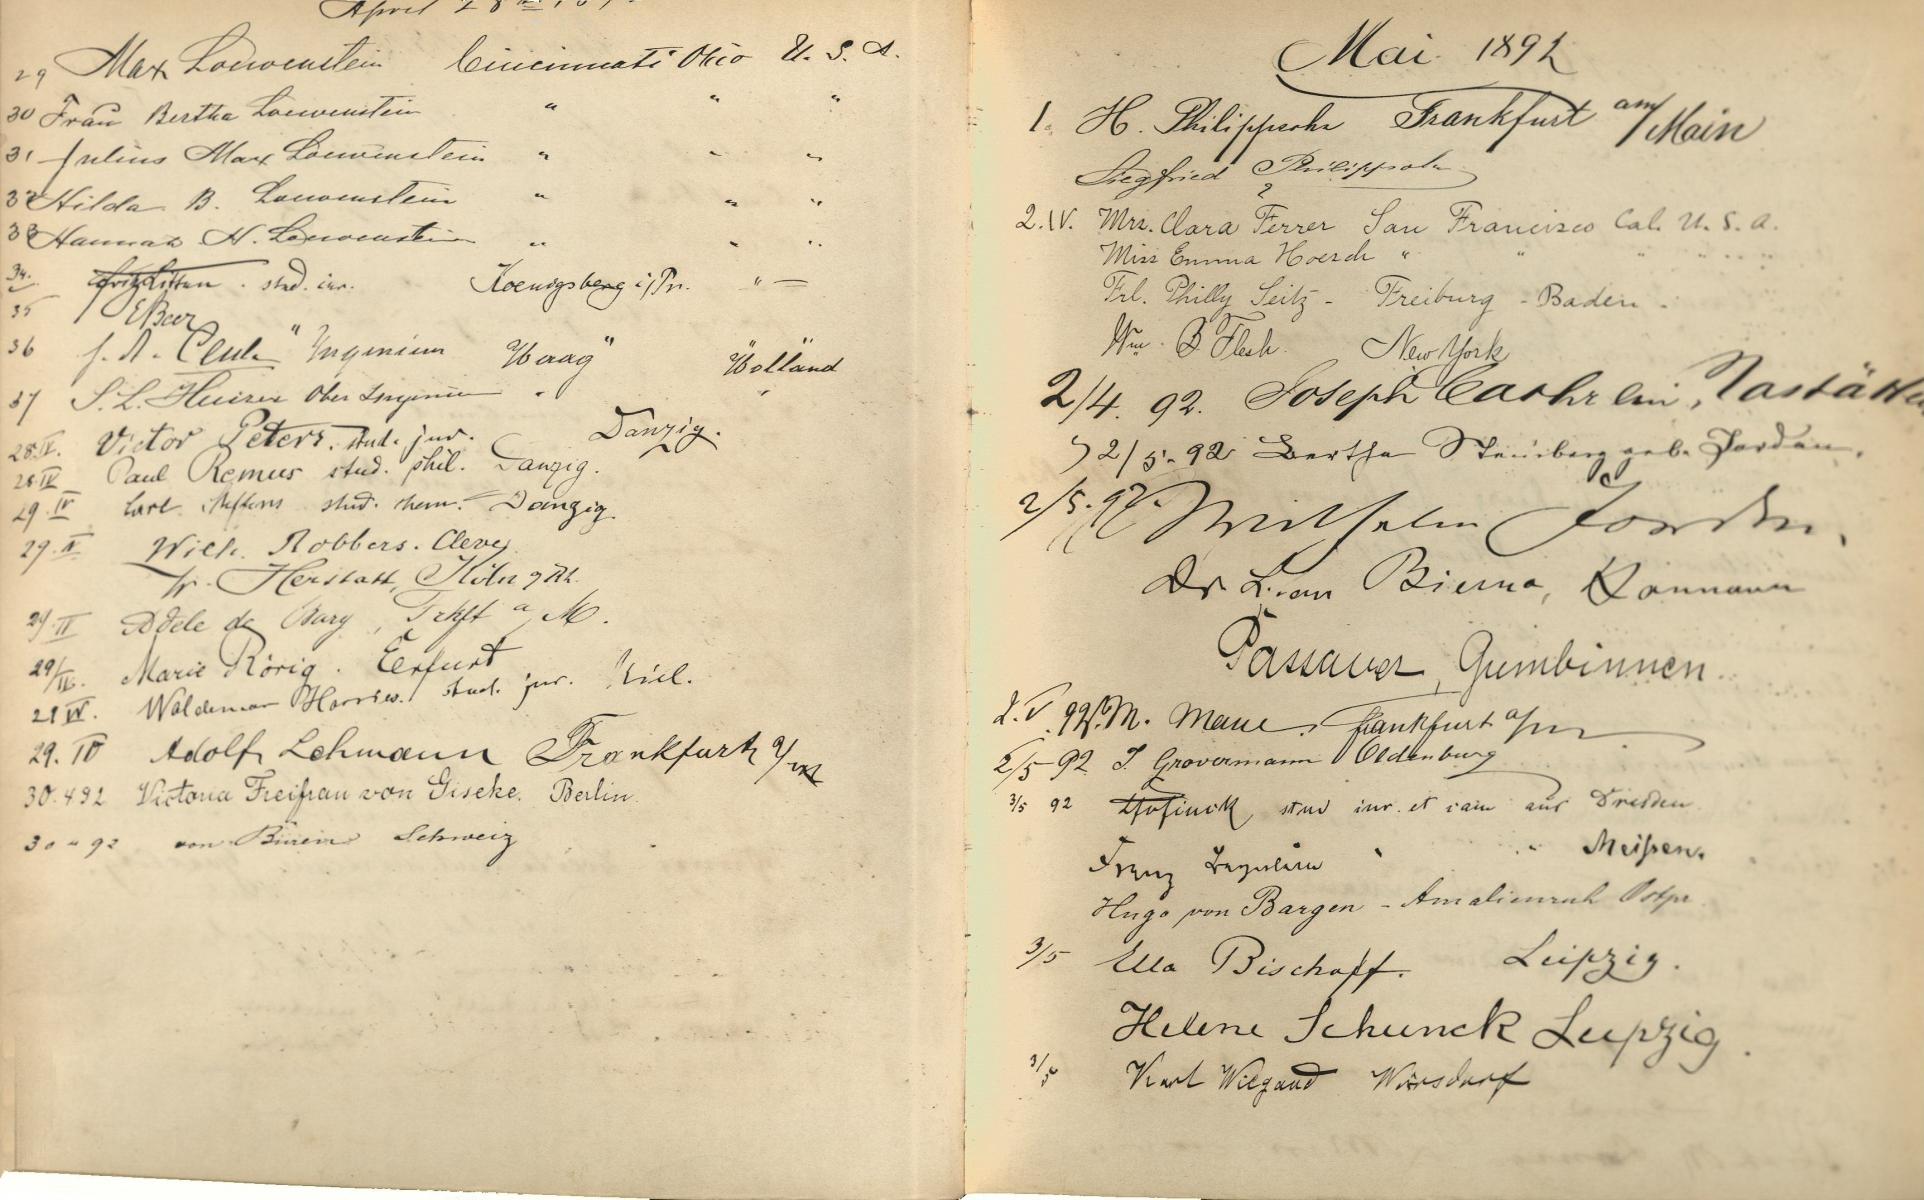 April 28
29 Max Loewenstein Cincinnati Ohio U. S. A.
30 Frau Bertha Loewenstein " " "
31 Julius Max Loewenstein " " "
32 Hilda B. Loewenstein " " "
33 Hannah H. Loewenstein " " "
34. stud. iur. Koenigsberg i/Pr. " —
35 E Beer
36 "Haag" Holland
37 S. L. Ober Ingenieur " "
28.IV. Victor Peters. stud. jur. Danzig.
28.IV Paul Remus stud. phil. Danzig.
29.IV Carl Steffens stud. chem. Danzig.
29.IV Wilh. Robbers. Cleve
Fr. Herstatt, Köln a/Rh.
29.IV Adele de Bary, Frkft a/M.
29/IV. Marie Rörig. Erfurt
29 IV. Waldemar Harries. stud. jur. Kiel.
29. IV Adolf Lehmann Frankfurt a/M
30.4 92 Victoria Freifrau von Giseke. Berlin.
30 " 92 von Büren Schweiz
Mai 1892
1. H. Philippsohn Frankfurt am/Main
Siegfried Philippsohn
2.IV. Mrs. Clara Ferrer San Francisco Cal. U. S. A.
Miss Emma Hoesch " " " " " "
Frl. Philly Seitz - Freiburg - Baden -
Wm. B Flesh. New York
2/4. 92. Joseph
2/5. 92 Bertha Steinberg geb. Jordan.
2/5. 92. Wilhelm Jordan.
Dr. Leon Bierma,
Passauer, Gumbinnen.
2.V.92. M. Maue. Frankfurt a/m
2/5 92 J. Grovermann Oldenburg
3/5 92 stud iur. et cam aus Dresden
Franz " " Meißen.
Hugo von Bargen - Amalienruh Ostpr.
3/5 Ella Bischoff. Leipzig.
Helene Schunck Leipzig.
3/5 Karl Wiegand Wörsdorf